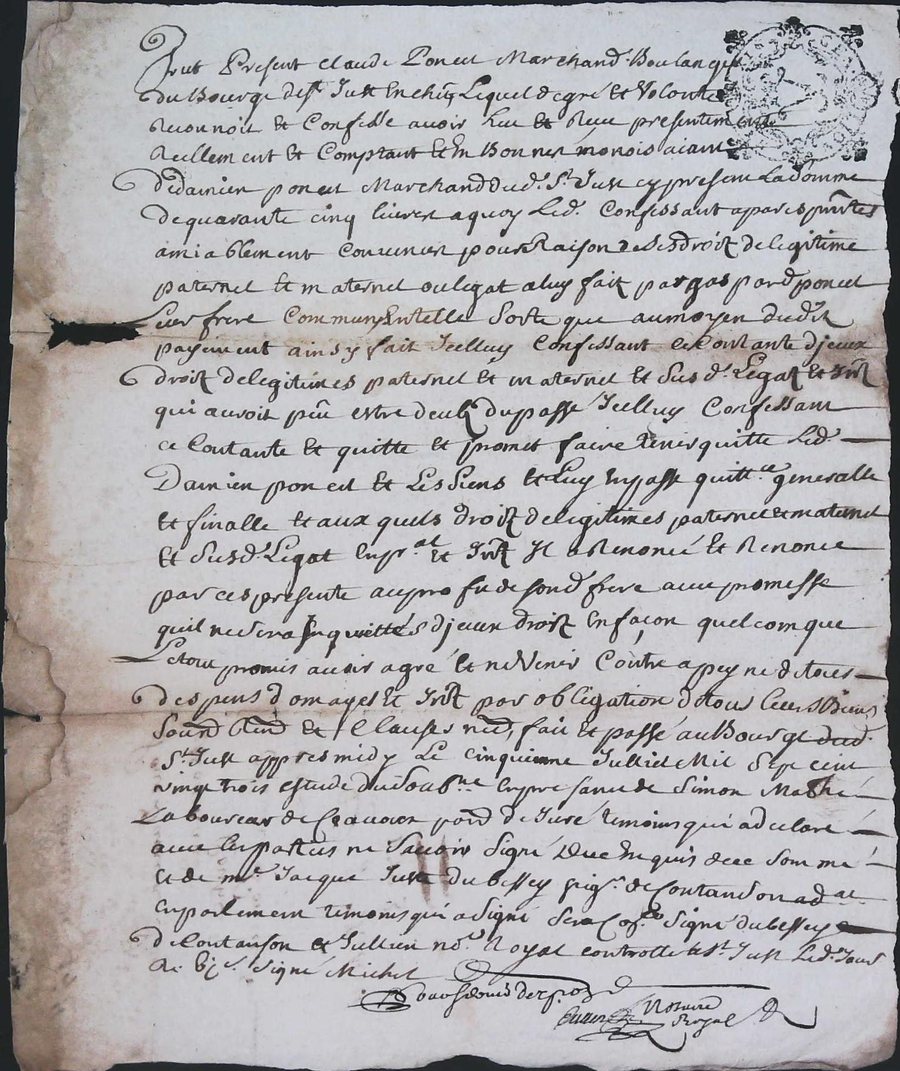 Fut Present claude Poncet Marchand Boulanger
du Bourg de St Just En chi Lequel de gré et Volonté
Reconnoit et Confesse avoir heu et Receu presentement
Reellement et Comptant et En Bonnes monois aiant
de damien poncet Marchand dud. St Just cy present La somme
de quarante cinq livres a quoy Led. Confessant a pares
amiablement convenies pour Raison de Ses droit de legitime
paternel et maternel ou legat a luy fait par gaspard poncet
Leur frere Commun Entelle Sorte que au moyen dudit
payement ainsy fait Icelluy Confessant ce Contante d'jceux
droit de legitimes paternel et maternel et Susd. Legat et
qui auroit peu estre deub du passé Icelluy Confessant
ce Contante et quitte et promet faire tenir quitte Led.
Damien poncet et Les Siens et Luy En passe quittce generalle
et finalle et aux quels droit de legitimes paternel et maternel
et Susd. Legat En pral et Il a Renoncé et Renonce
par ces presente au profit de sond frere avec promesse
quil ne Sera Inquitté djceux droit En façon quelcomque
Le tout promis avoir agré et ne Venir Contre a peyne de toues
despens domages et par obligation de tous Leurs Biens
et Clauses fait et passé au Bourgt dud.
St Just appres midy Le cinquieme Julliet Mil Sept cent
vingt trois estude du Soubne En presance de Simon Mathé
Laboureur de par de Juré temoins qui a declaré
avec Les parties ne Sçavoir Signé de ce Enquis et de ce Sommé
et de me Jacque Just Du bessey de Contanson ad at
En parlement temoins qui a Signé Sera Signé dubessey
de Contanson et Jullien nore Royal controllé a St Just Led. Jour
Signé Michel
Notaire
Royal